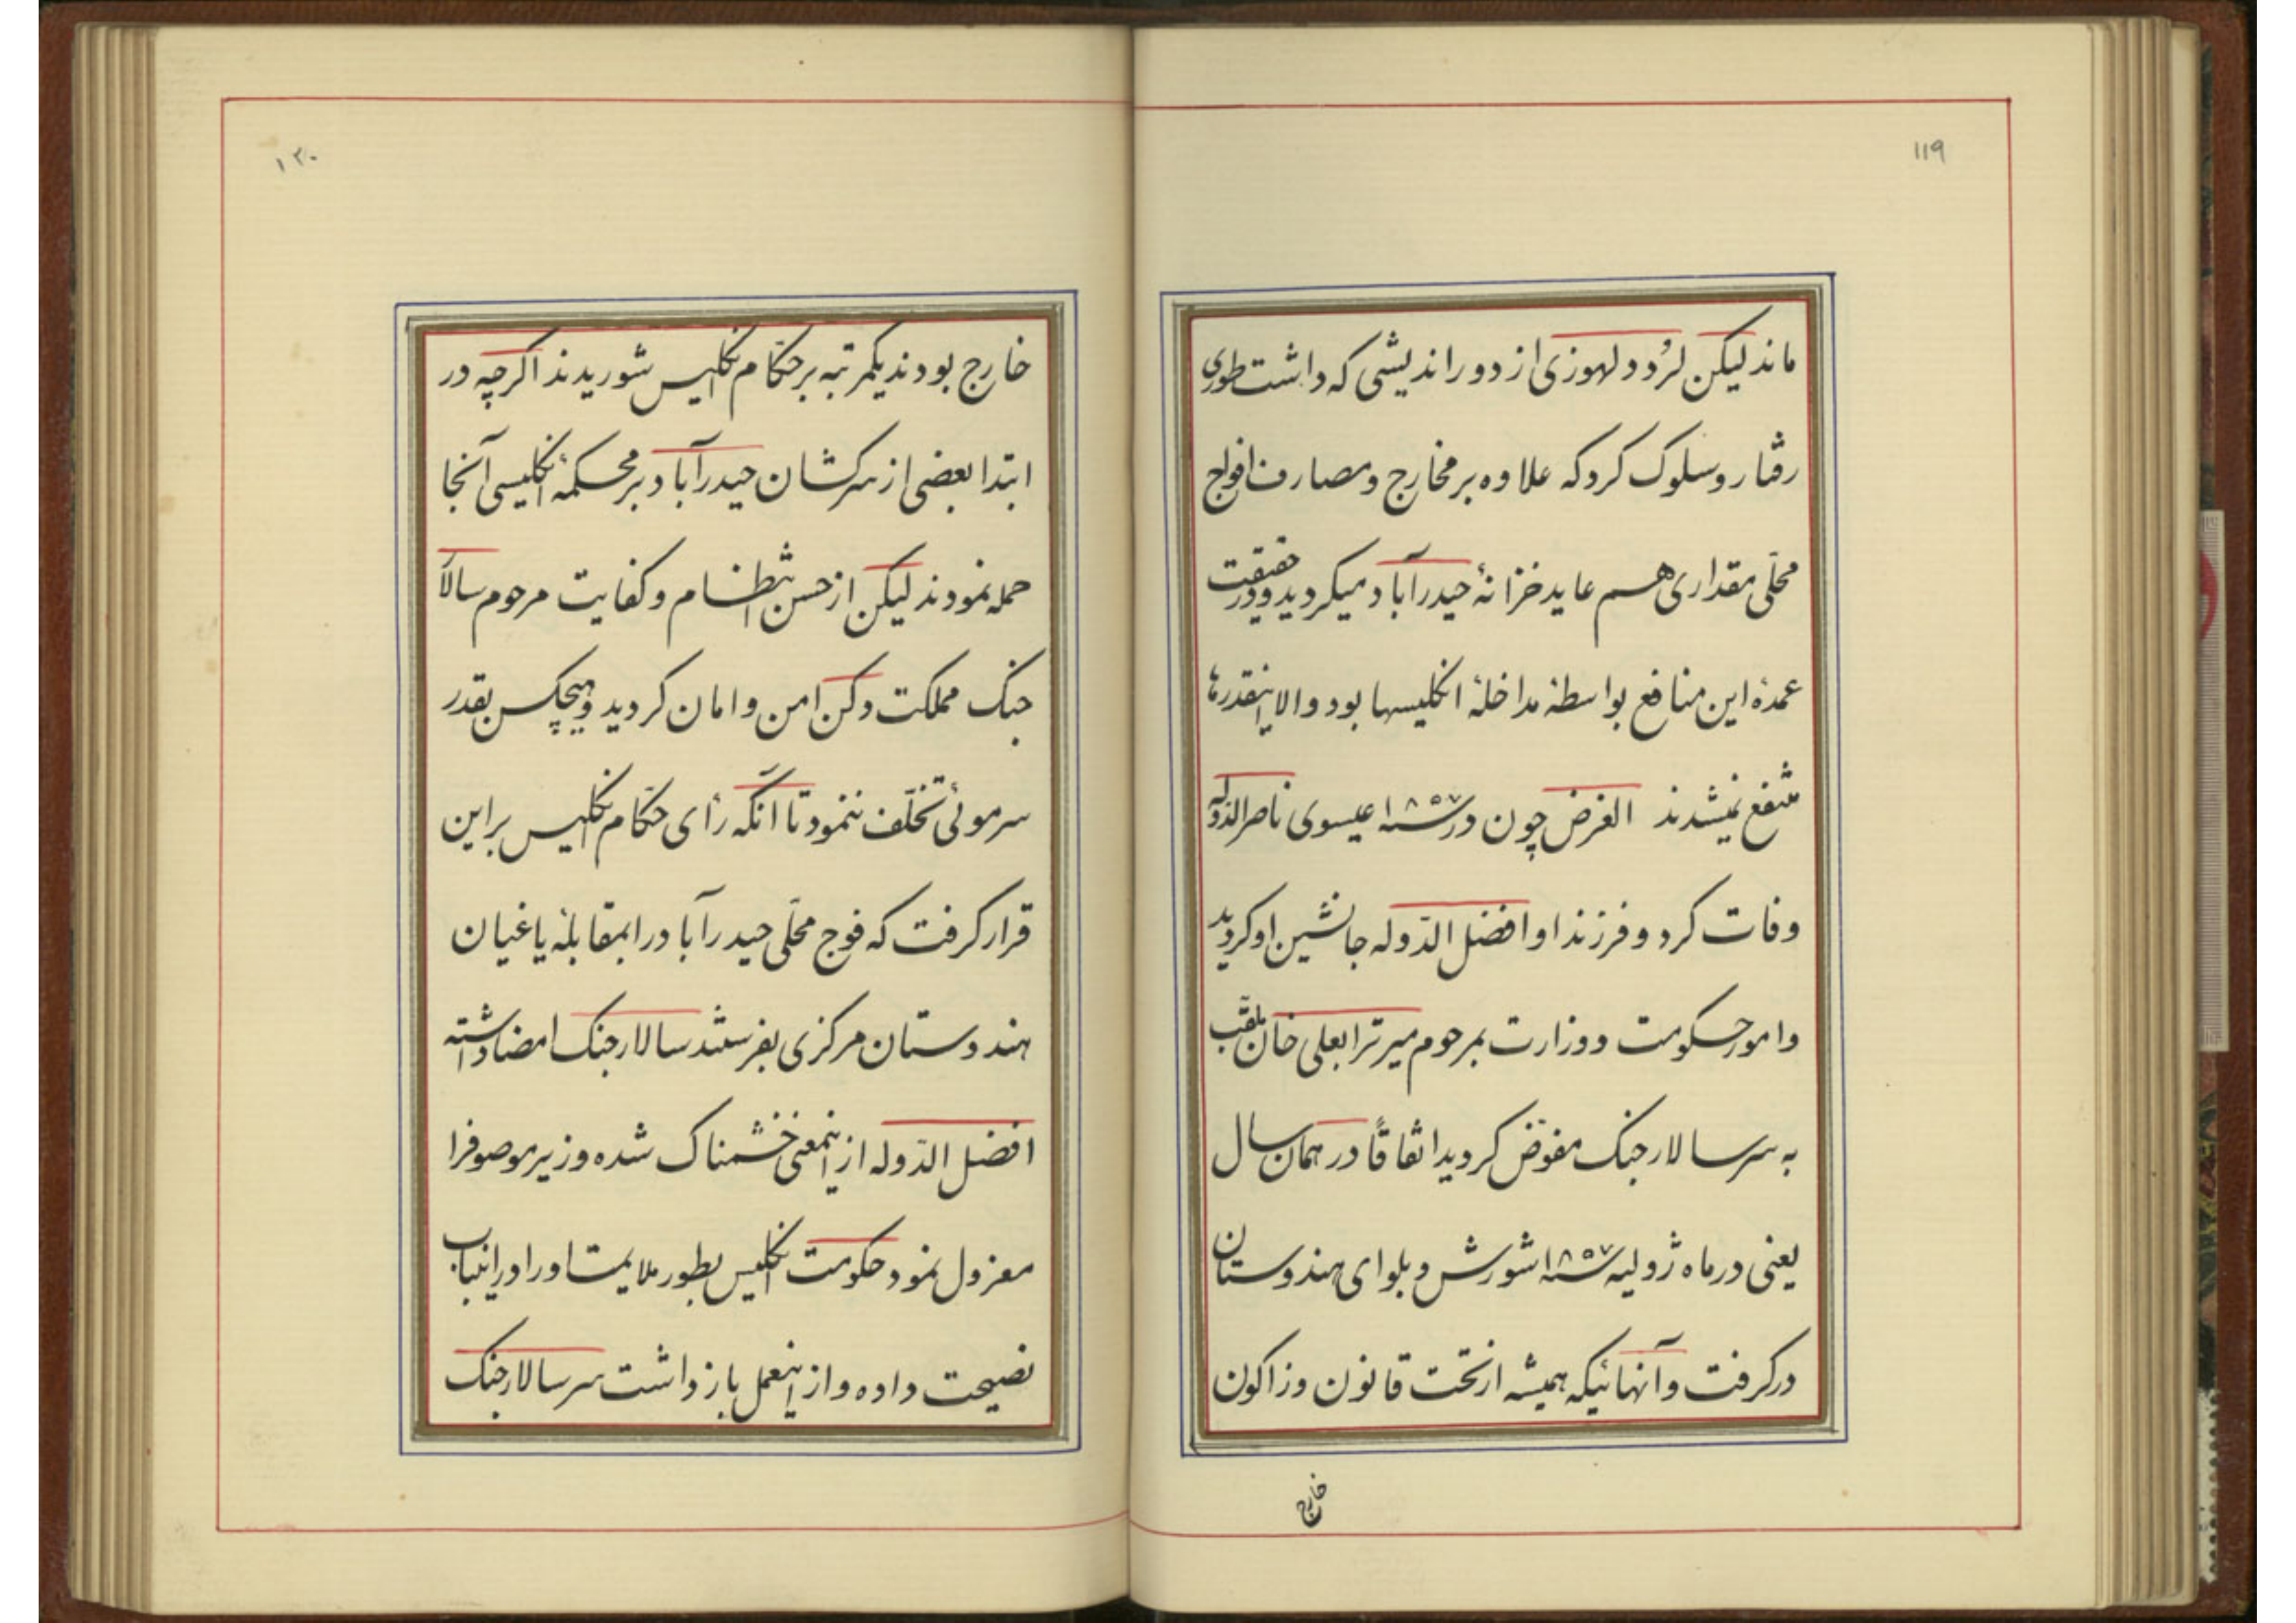 ۱۱۹
ماند لیکن لرُد دلهوزی از دوراندیشی که داشت طوری
رفتار و سلوک کرد که علاوه بر مخارج و مصارف افواج
محلّی مقداری هسم عاید خزانهٔ حیدرآباد میکردید و در حقیقت
عمدهٔ این منافع بواسطهٔ مداخلهٔ انکلیسها بود والا اینقدرها
منتفع نمیشدند الغرض چون در سنه ۱۸۵۷ عیسوی ناصرالدوله
وفات کرد و فرزند او افضل الدّوله جانشین او کردید
و امور حسکومت و وزارت بمرحوم میر ترابعلی خان ملقّب
به سر سالار جنک مفوّض کردید اتفاقاً در همان سال
یعنی در ماه ژولیه سنه ۱۸۵۷ شورش و بلوای هندوستان
درکرفت و آنهائیکه همیشه از تحت قانون و زاکون
خارج
۱۲۰
خارج بودند یکمرتبه بر حکّام انکلیس شوریدند اکرچه در
ابتدا بعضی از سرکشان حیدرآباد بر محسکمهٔ انکلیسی آنجا
حمله نمودند لیکن از حسن انتظام و کفایت مرحوم سالار
جنک مملکت دکن امن و امان کردید و هیچکس بقدر
سرموئی تخلّف ننمود تا آنکه رأی حکّام انکلیس بر این
قرار کرفت که فوج محلّی حیدرآباد را بمقابلهٔ یاغیان
هندوستان مرکزی بفرستند سالار جنک امضا داشته
افضل الدّوله از اینمعنی خشمناک شده وزیر موصوف را
معزول نمود حکومت انکلیس بطور ملایمت او را در اینباب
نصیحت داده و از اینعمل باز داشت سر سالار جنک